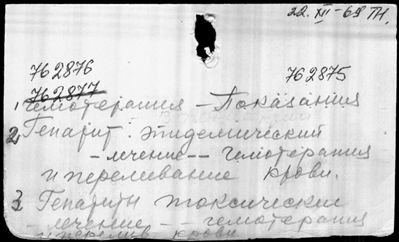 22. XII - 69 ТН.
762876
762877
762875
1, Гемотерапия - Показания
2, Гепатит: эпидемический
- лечение -- гемотерапия
и переливание крови.
3, Гепатиты токсические
- лечение - - гемотерапия
и перелив. крови